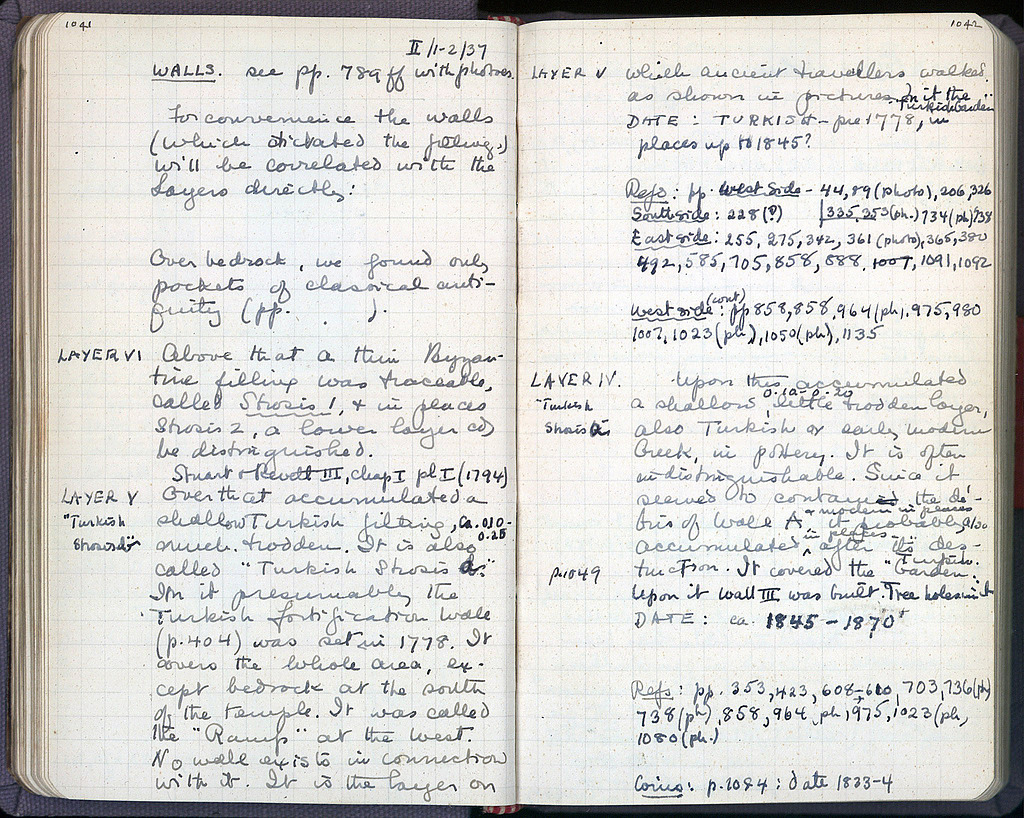 1041
II/1-2/37
WALLS. see pp. 789ff with photoes.
For convenience the walls
(which dictated the filling,)
will be correlated with the
Layers directly:
Over bedrock, we found only
pockets of classical anti-
quity (pp. ).
LAYER VI Above that a thin Byzan-
tine filling was traceable,
called Strosis 1, & in places
Strosis 2, a lower layer cd
be distinguished.
Stuart & Revett III, chap I pl I (1794)
LAYER V Over that accumulated a
"Turkish shallow Turkish filling, ca. 0.10-
0.25
Strosis much trodden. It is also
called "Turkish Strosis
In it presumably the
Turkish fortification wall
(p. 404) was set in 1778. It
covers the whole area, ex-
cept bedrock at the south
of the temple. It was called
the "Ramp" at the west.
No wall exists in connection
with it. It is the layer on
1042
LAYER V which ancient travellers walked
as shown in pictures. In it the
"Turkish Garden"
DATE: TURKISH - pre 1778, in
places up to 1845?
Refs: pp. West side - 44, 89 (photo), 206, 326
South side: 228 (?) 335, 353 (ph.) 734 (ph) 738
East side: 255, 275, 342, 361 (photo), 365, 380
492, 585, 705, 858, 888, 1007, 1091, 1092
(cont)
West side: pp 858, 858, 964 (ph), 975, 980
1007, 1023 (ph), 1050 (ph), 1135
LAYER IV. Upon this accumulated
0.10-0.20
"Turkish a shallow, little trodden layer,
Strosis also Turkish or early modern
Greek, in pottery. It is often
indistinguishable. Since it
seemed to contain the de-
& modern in places
bris of Wall A, it probably also
in places
accumulated after its des-
p. 1049 truction. It covered the "Turkish
Garden.
Upon it wall III was built. Tree holes in it
DATE: ca. 1845-1870
Refs: pp. 353, 423, 608-610, 703, 736 (ph)
738 (ph), 858, 964 ph, 975, 1023 (ph,
1080 (ph.)
Coins: p. 1084: date 1833-4